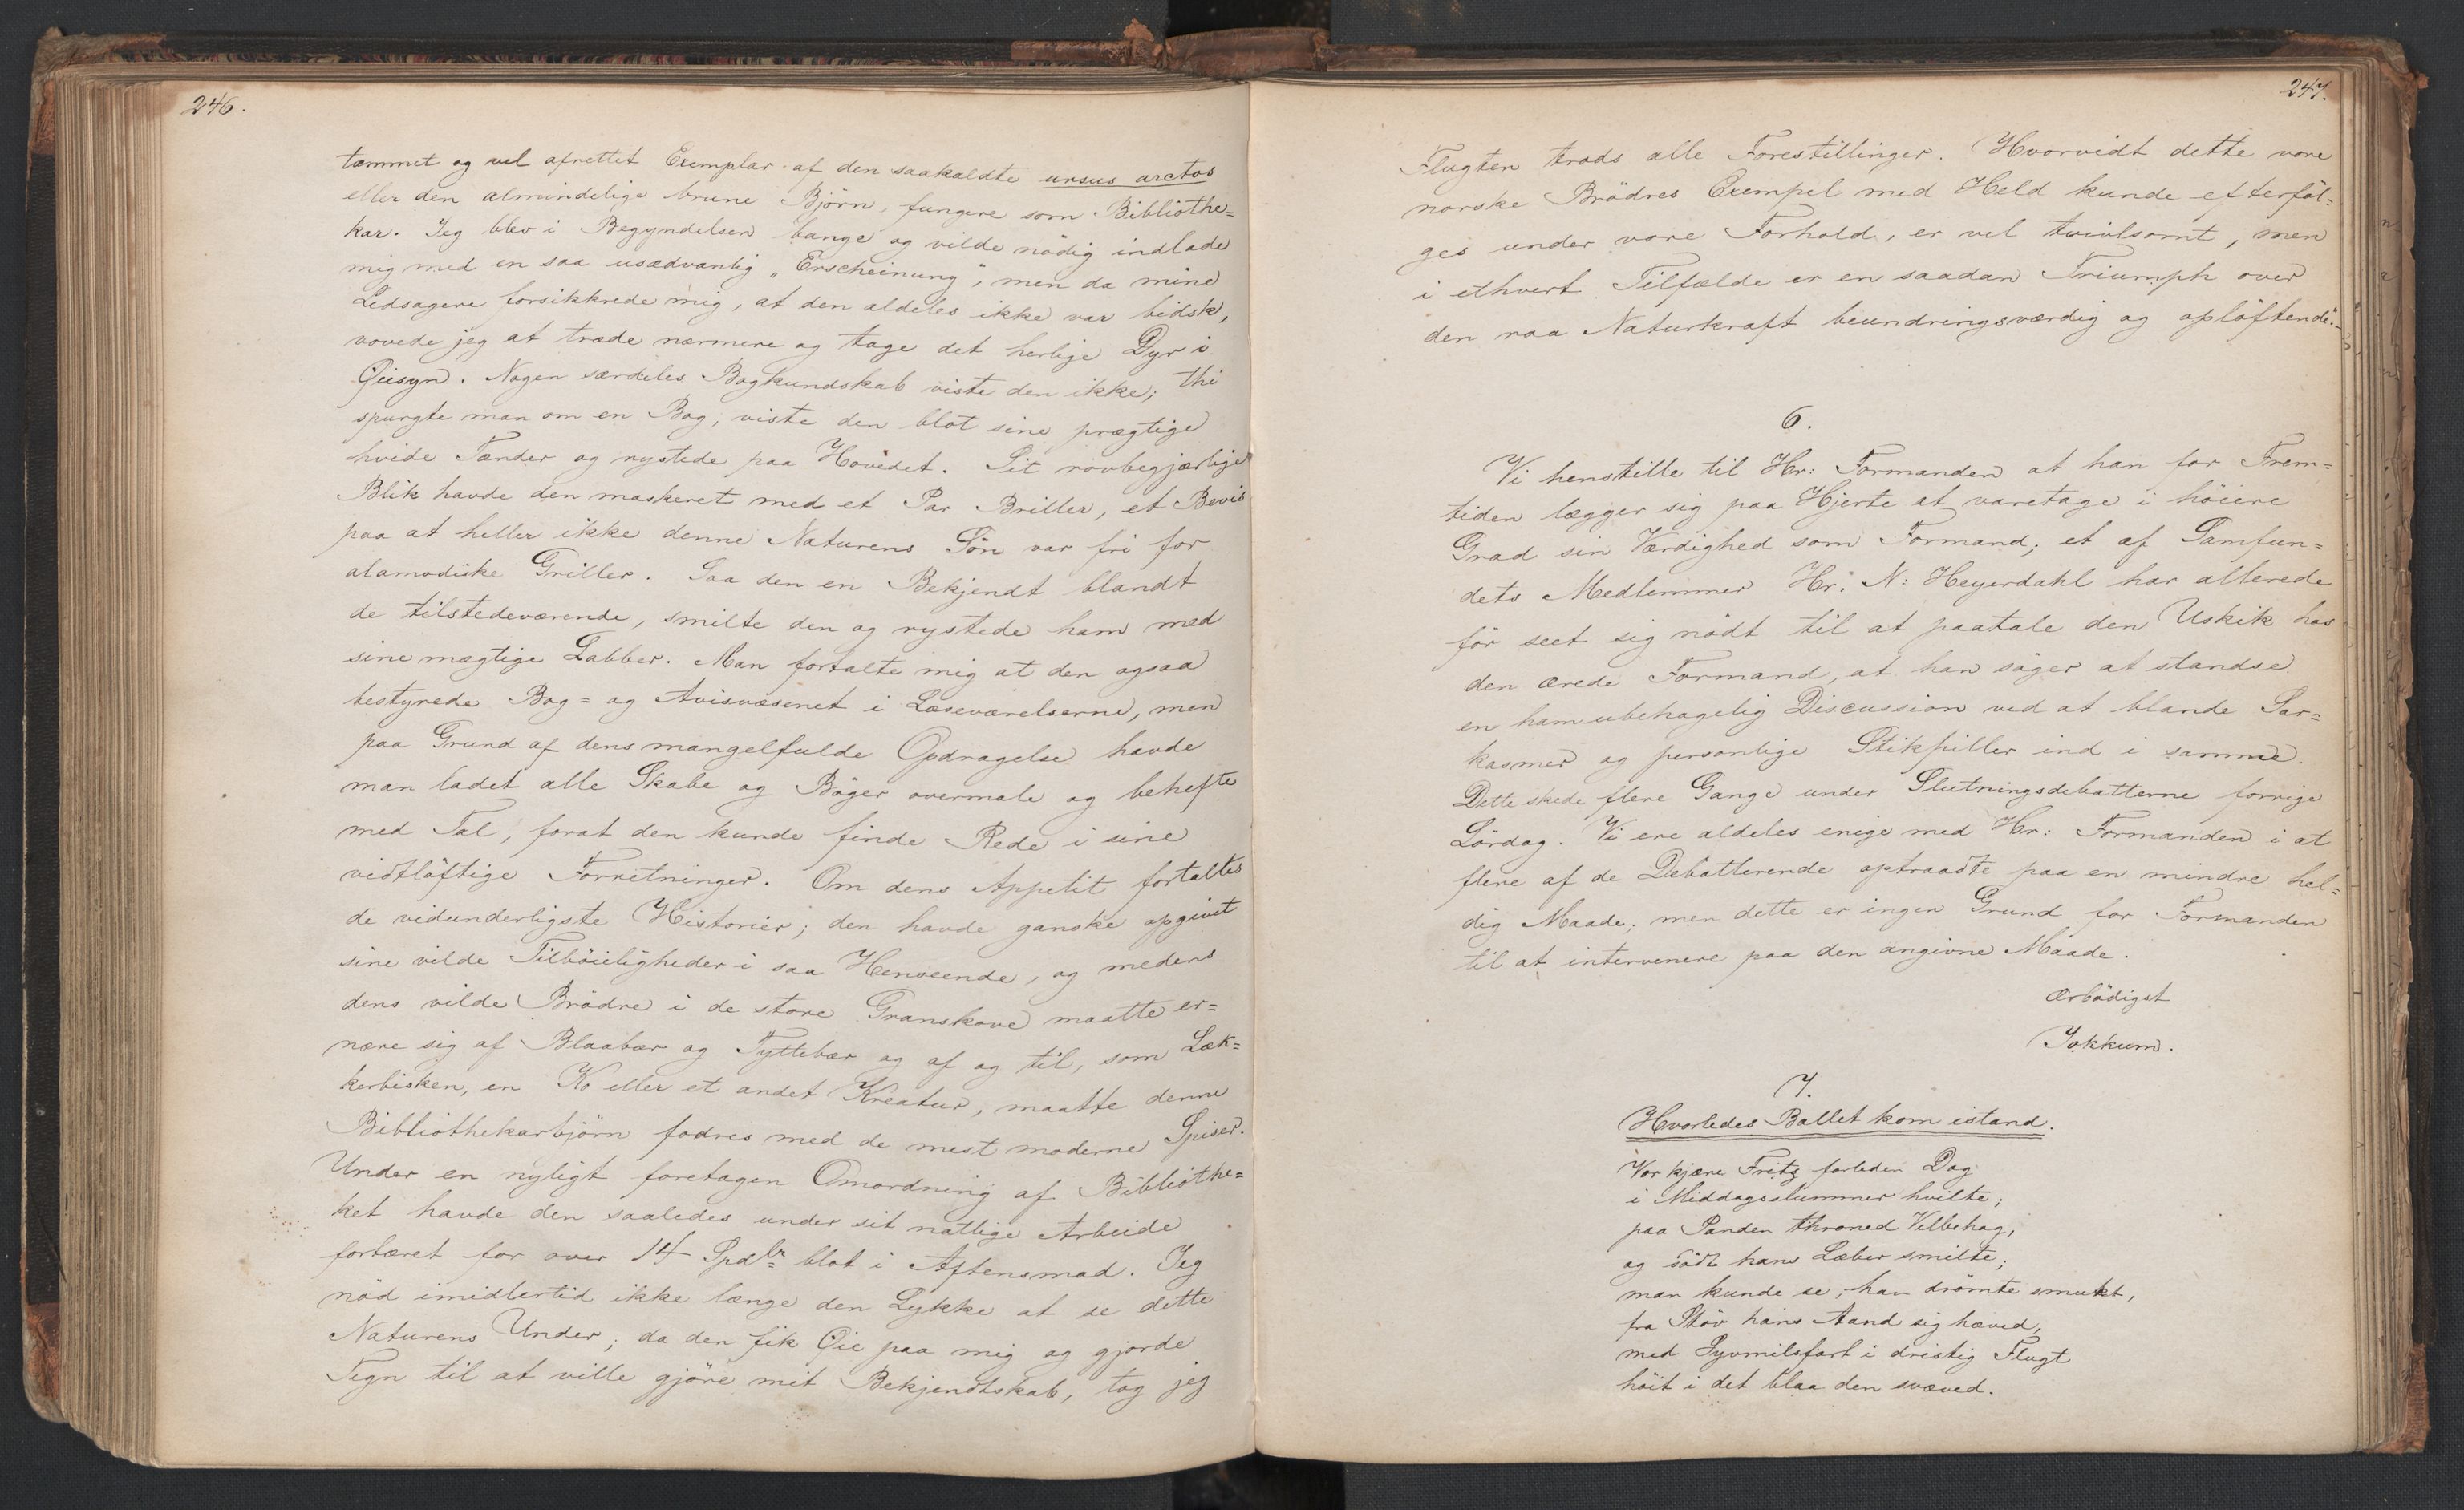 246.
tæmmet og vel afrettet Exemplar af den saakaldte ursus arctos
eller den almindelige brune Björn, fungere som Bibliothe=
kar. Jeg blev i Begyndelsen bange og vilde nödig indlade
mig med en saa usædvanlig „Erscheinung", men da mine
Ledsagere forsikkrede mig, at den aldeles ikke var bidsk,
vovede jeg at træde nærmere og tage det herlige Dyr i
Öiesyn. Nogen særdeles Bogkundskab viste den ikke; thi
spurgte man om en Bog, viste den blot sine prægtige
hvide Tænder og rystede paa Hovedet. Sit rovbegjærlige
Blik havde den maskeret med et Par Briller, et Bevis
paa at heller ikke denne Naturens Sön var fri for
alamodiske Griller. Saa den en Bekjendt blandt
de tilstedeværende, smilte den og rystede ham med
sine mægtige Labber. Man fortalte mig at den ogsaa
bestyrede Bog= og Avisvæsenet i Læseværelserne, men
paa Grund af dens mangelfulde Opdragelse havde
man ladet alle Skabe og Böger overmale og behefte
med Tal, forat den kunde finde Rede i sine
vidtlöftige Forretninger. Om dens Appetit fortaltes
de vidunderligste Historier; den havde ganske opgivet
sine vilde Tilböieligheder i saa Henseende, og medens
dens vilde Brödre i de store Granskove maatte er=
nære sig af Blaabær og Tyttebær og af og til, som Læk=
kerbisken, en Ko eller et andet Kreatur, maatte denne
Bibliothekarbjörn fodres med de mest moderne Spiser.
Under en nyligt foretagen Omordning af Bibliothe=
ket havde den saaledes under sit natlige Arbeide
fortæret for over 14 Spdlr blot i Aftensmad. Jeg
nöd imidlertid ikke længe den Lykke at se dette
Naturens Under; da den fik Öie paa mig og gjorde
Tegn til at ville gjöre mit Bekjendtskab, tog jeg
247.
Flugten trods alle Forestillinger. Hvorvidt dette vore
norske Brödres Exempel med Held kunde efterföl=
ges under vore Forhold, er vel tvivlsomt, men
i ethvert Tilfælde er en saadan Triumph over
den raa Naturkraft beundringsværdig og oplöftende."
6.
Vi henstille til Hr: Formanden at han for Frem=
tiden lægger sig paa Hjerte at varetage i höiere
Grad sin Værdighed som Formand; et af Samfun=
dets Medlemmer Hr: N: Heyerdahl har allerede
för seet sig nödt til at paatale den Uskik hos
den ærede Formand, at han söger at standse
en ham ubehagelig Discussion ved at blande Sar=
kasmer og personlige Stikpiller ind i samme.
Dette skede flere Gange under Slutningsdebatterne forrige
Lördag. Vi ere aldeles enige med Hr: Formanden i at
flere af de Debatterende optraadte paa en mindre hel=
dig Maade; men dette er ingen Grund for Formanden
til at intervenere paa den angivne Maade.
Ærbödigst
Jokkum.
7.
Hvorledes Ballet kom istand.
Vor kjære Fritz forleden Dag
i Middagsslummer hvilte;
paa Panden throned Velbehag,
og södt hans Læber smilte;
man kunde se, han drömte smukt,
fra Stöv hans Aand sig hæved,
med Syvmilsfart i dristig Flugt
höit i det blaa den svæved.